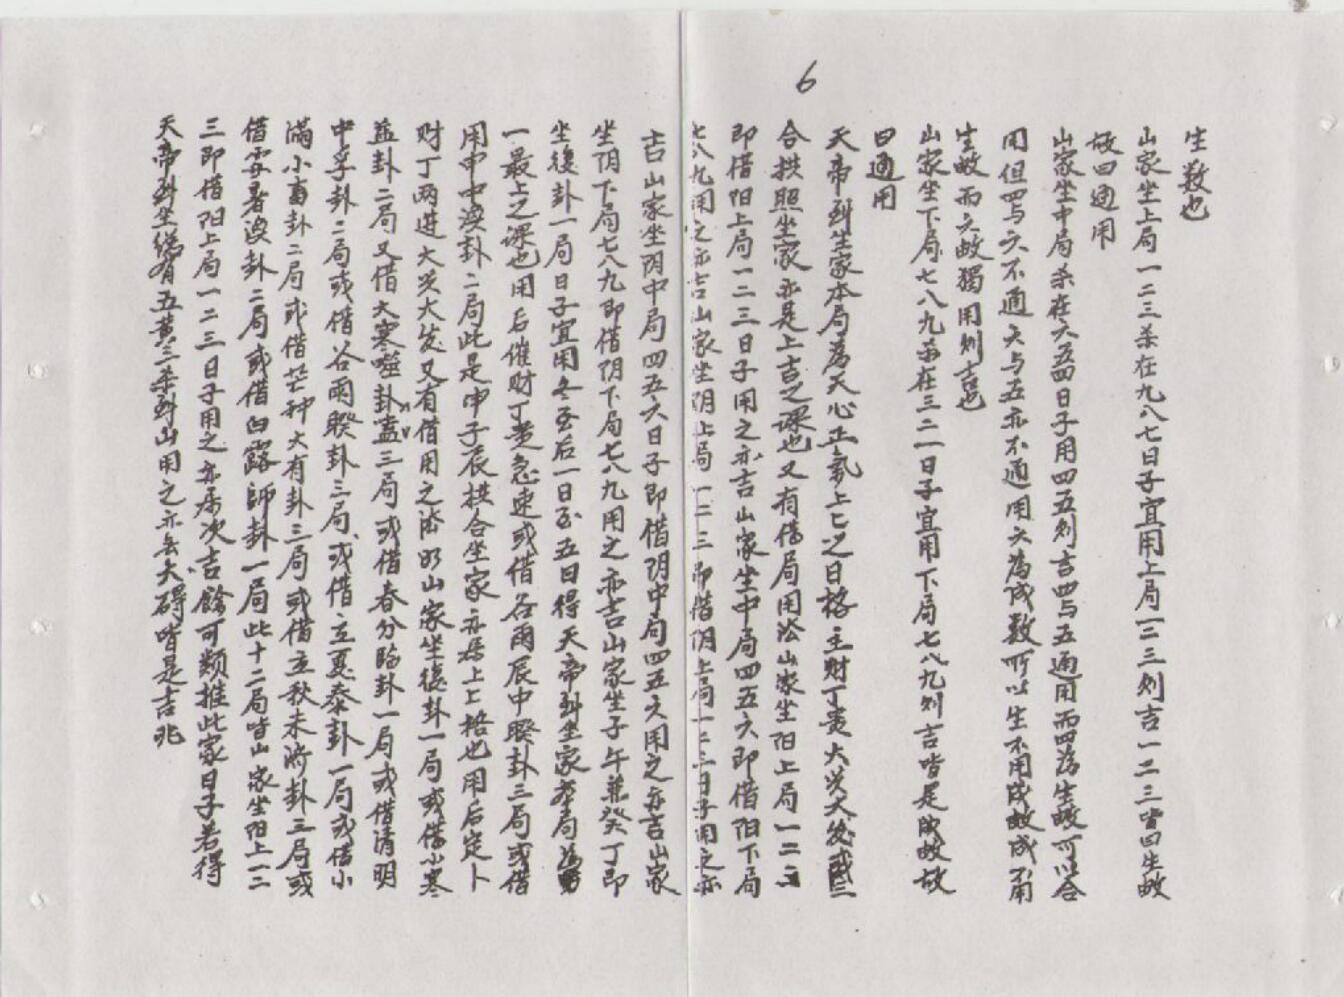 6
生数也
山家坐上局一二三杀在九八七日子宜用上局一二三则吉一二三皆曰生数
故曰通用
山家坐中局杀在六五四日子用四五则吉四与五通用而四为生数可以合
用但四与六不通六与五亦不通用六为成数所以生不用成数成不用
生数而六数獨用则吉也
山家坐下局七八九杀在三二一日子宜用下局七八九则吉皆是成数故
曰通用
天帝到坐家本局为天心正氣上七之日格主财丁贵大兴大發或三
合拱照坐家亦是上吉之课也又有借局用法山家坐阳上局一二三
即借阳上局一二三日子用之亦吉山家坐中局四五六即借阳下局
七八九用之亦吉山家坐阴上局一二三即借阴上局一二三日子用之亦
吉山家坐阴中局四五六日子即借阴中局四五六用之亦吉山家
坐阴下局七八九即借阴下局七八九用之亦吉山家坐子午兼癸丁即
坐復卦一局日子宜用冬至后一日至五日得天帝到坐家本局为
一最上之课也用后催财丁贵急速或借谷雨辰中睽卦三局或借
用申中涣卦二局此是申子辰拱合坐家亦为上上格也用后定卜
财丁两进大兴大发又有借用之法如山家坐復卦一局或借小寒
益卦二局又借大寒噬卦嗑三局或借春分臨卦一局或借清明
中孚卦二局或借谷雨睽卦三局或借立夏泰卦一局或借小
滿小畜卦二局或借芒种大有卦三局或借立秋未济卦三局或
借處暑涣卦二局或借白露師卦一局此十二局皆山家坐阳上一二
三即借阳上局一二三日子用之亦为次吉餘可类推此家日子若得
天帝到坐縱有五黄三杀到山用之亦无大碍皆是吉兆